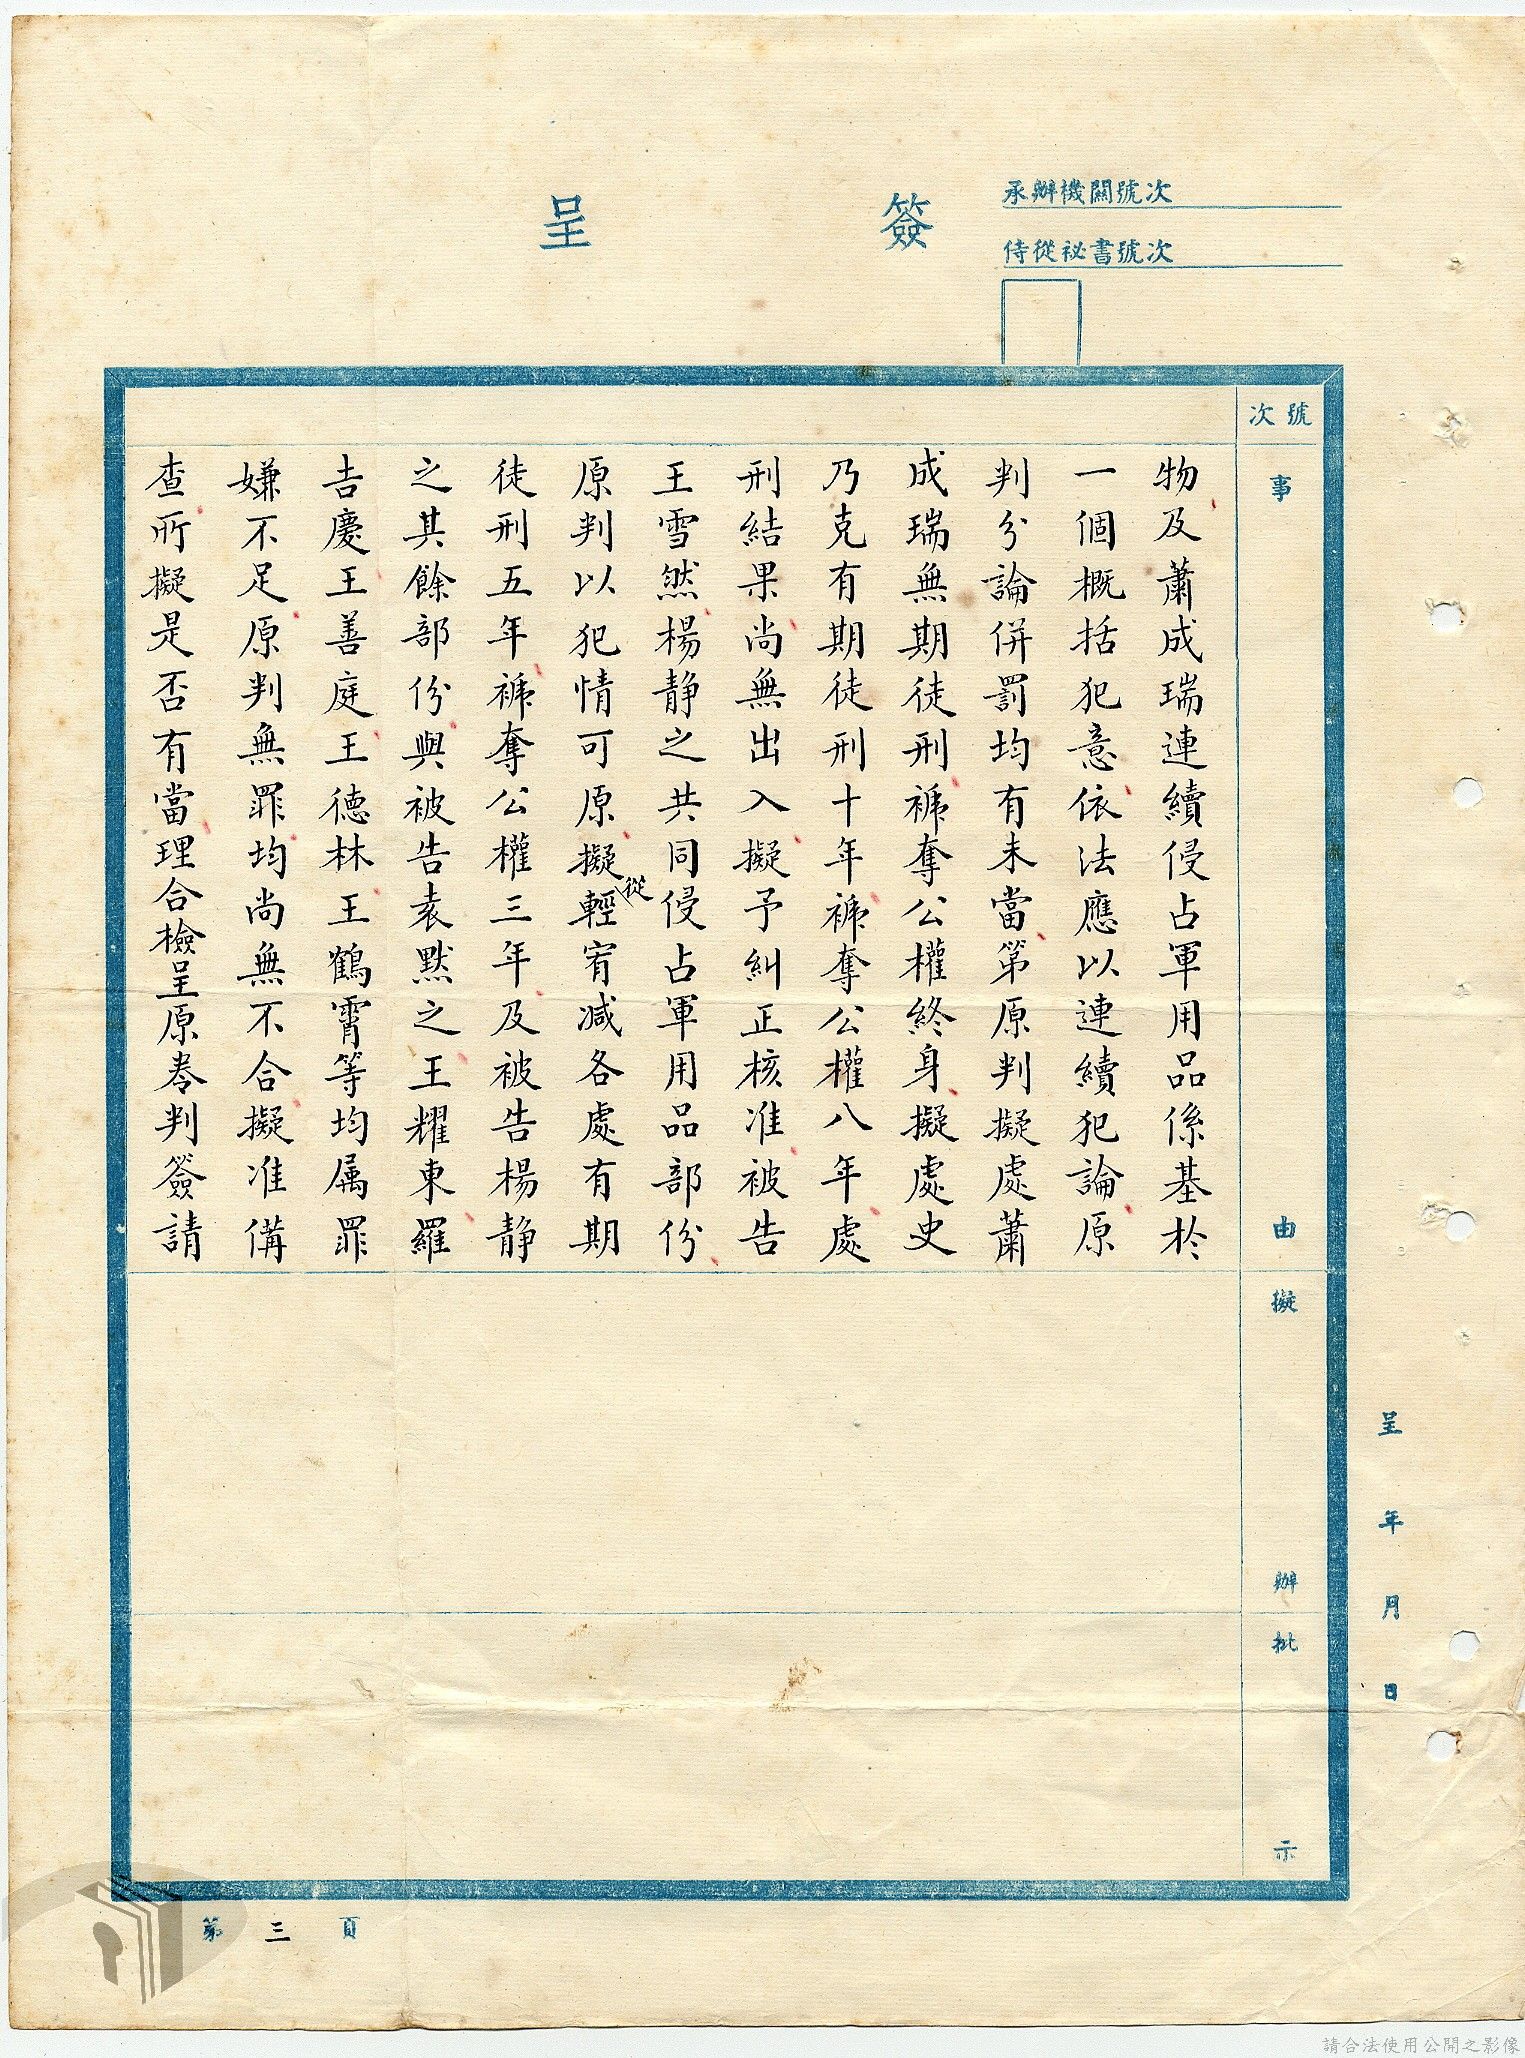 承辦機關號次
侍從祕書號次
簽呈
號次
事由
擬辦
批示
物及蕭成瑞連續侵占軍用品係基於
一個概括犯意依法應以連續犯論原
判分論併罰均有未當第原判擬處蕭
成瑞無期徒刑褫奪公權終身擬處史
乃克有期徒刑十年褫奪公權八年處
刑結果尚無出入擬予糾正核准被告
王雪然楊静之共同侵占軍用品部份
原判以犯情可原擬從輕宥减各處有期
徒刑五年褫奪公權三年及被告楊静
之其餘部份與被告袁默之王耀東羅
吉慶王善庭王德林王鶴霄等均属罪
嫌不足原判無罪均尚無不合擬准備
查所擬是否有當理合檢呈原卷判簽請
呈年月日
第三頁
請合法使用公開之影像